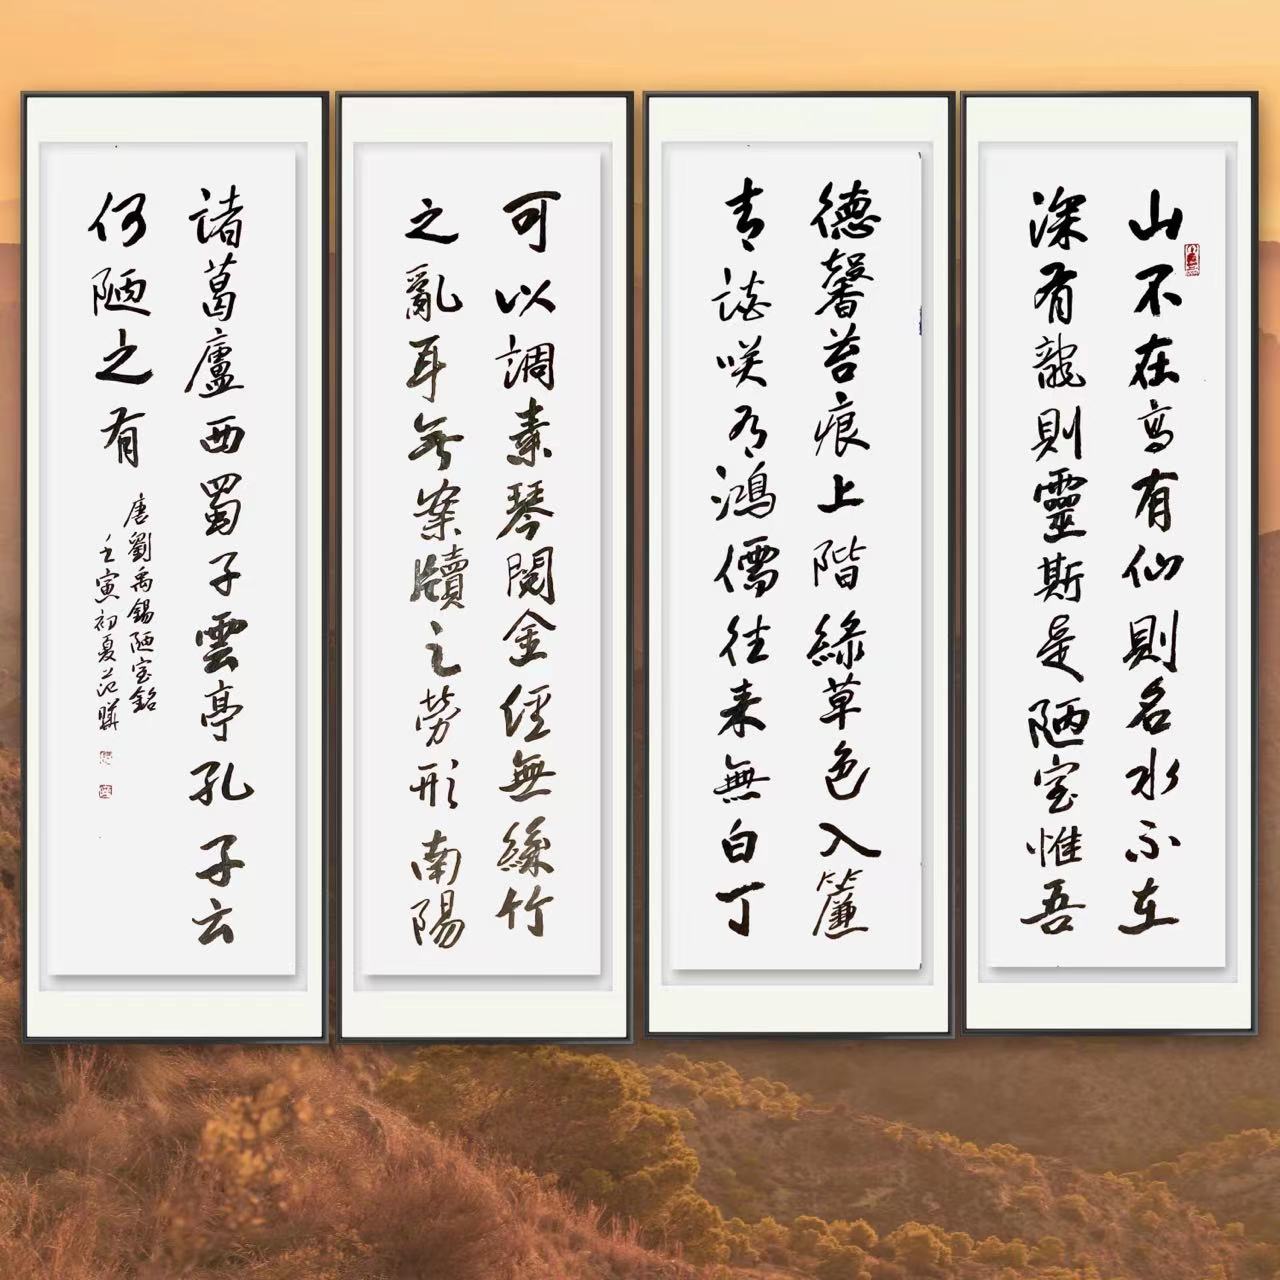 山不在高有仙則名水不在
深有龍則靈斯是陋室惟吾
德馨苔痕上階綠草色入簾
青談咲有鴻儒往来無白丁
可以調素琴閱金經無絲竹
之亂耳無案牘之勞形南陽
諸葛廬西蜀子雲亭孔子云
何陋之有
唐劉禹錫陋室銘
壬寅初夏范曄